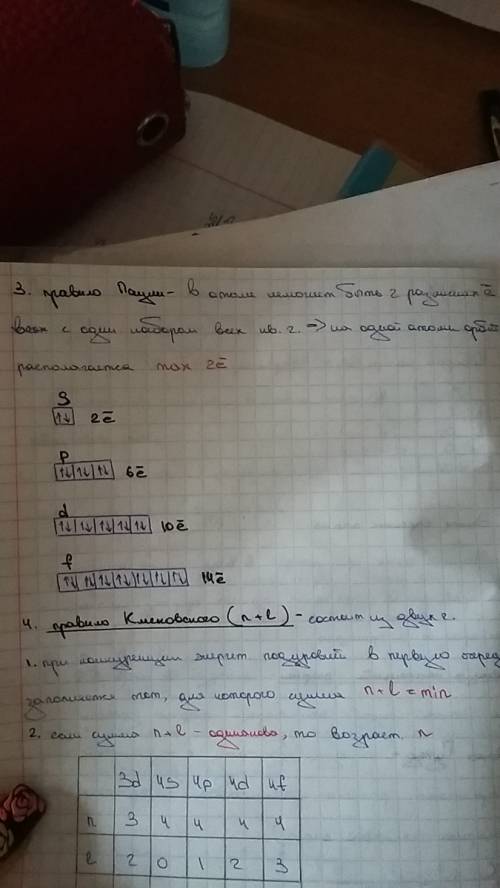 3. правило Паули - в атоме не может быть 2 ē
всех с одни набором всех кв. г. => на одной атом. орбит
располагается max 2ē
S
↑↓ 2ē
p
↑↓ ↑↓ ↑↓ 6ē
d
↑↓ ↑↓ ↑↓ ↑↓ ↑↓ 10ē
f
↑↓ ↑↓ ↑↓ ↑↓ ↑↓ ↑↓ ↑↓ 14ē
4. правило Клечковского (n+l) - состоит из двух г.
1. при конкуренции энергит. подуровней в первую очеред
заполняется тот, для которого сумма n+l = min
2. если сумма n+l - одинакова, то возраст. n
3d 4s 4p 4d 4f
n 3 4 4 4 4
l 2 0 1 2 3